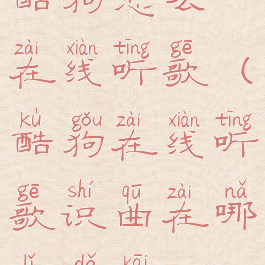 酷狗怎么
zài xiàn tīng gē
在线听歌（
kù gǒu zài xiàn tīng
酷狗在线听
gē shí qū zài nǎ
歌识曲在哪
lǐ dǎ kāi